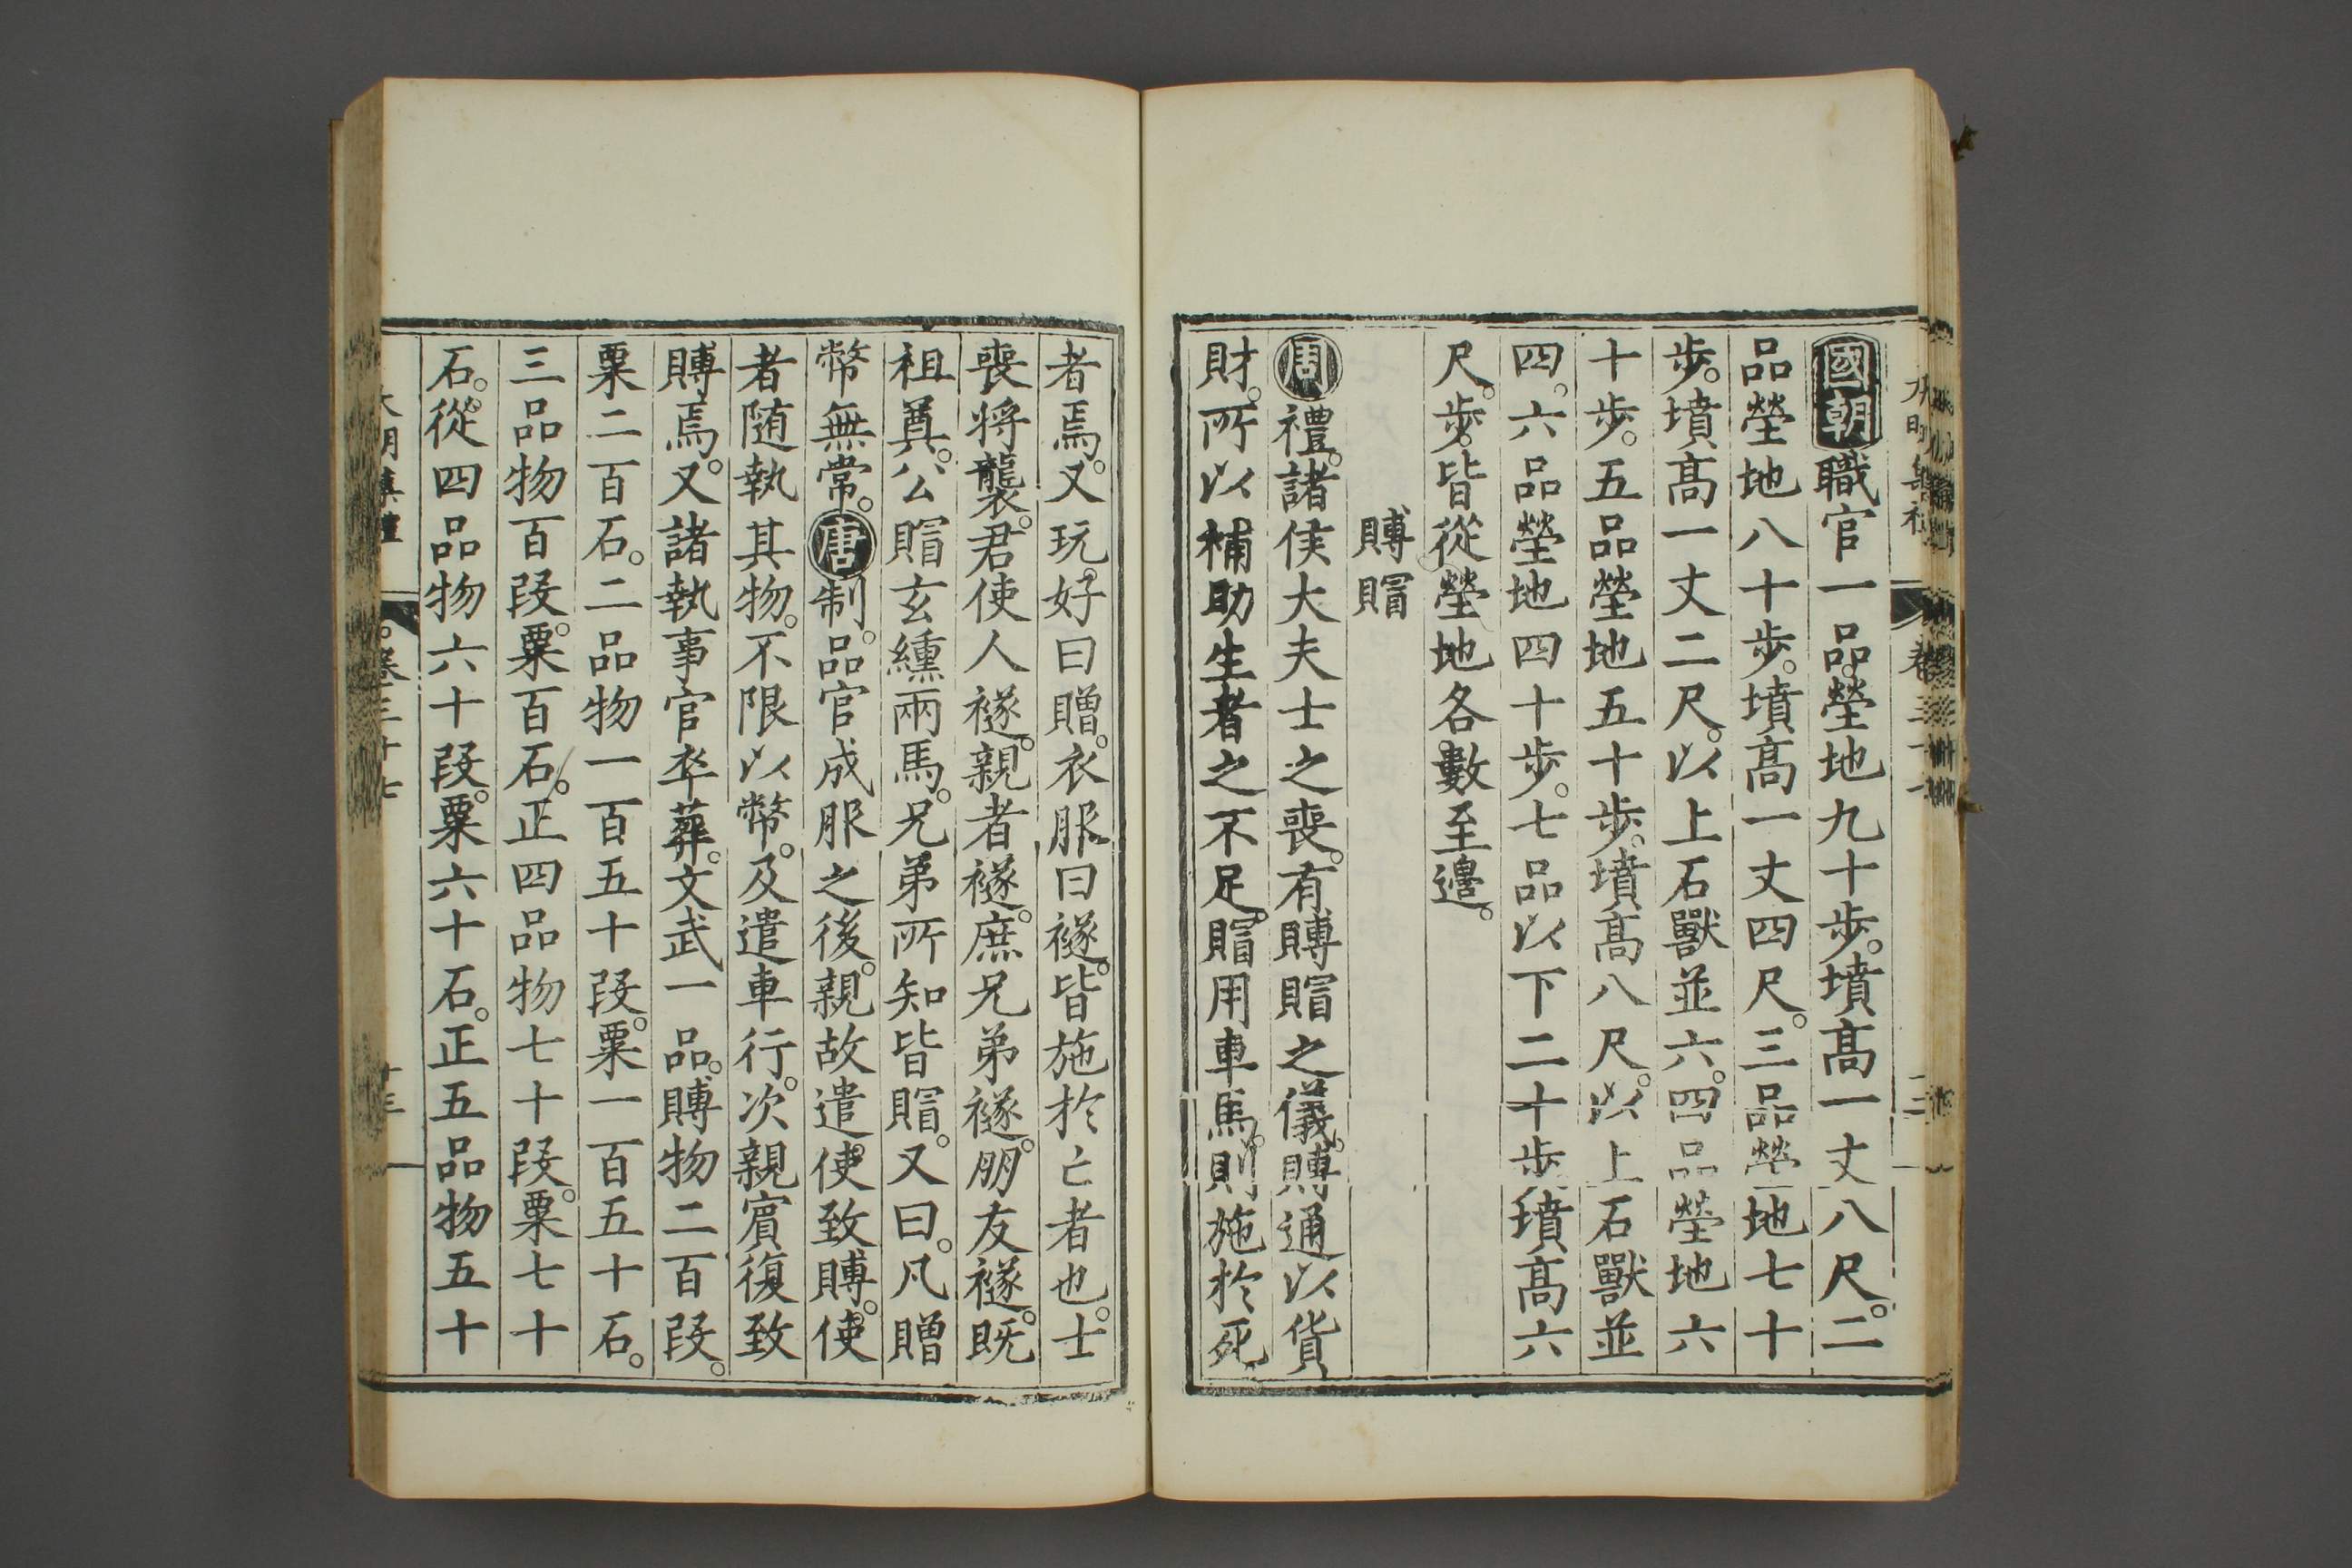 國朝職官一品。塋地九十步。墳高一丈八尺。二
品塋地八十步。墳高一丈四尺。三品塋地七十
步。墳高一丈二尺。以上石獸並六。四品塋地六
十步。五品塋地五十步。墳高八尺。以上石獸並
四。六品塋地四十步。七品以下二十步墳高六
尺。步。皆從塋地各數至邊。
賻賵
周禮。諸侯大夫士之喪。有賻賵之儀。賻通以貨
財。所以補助生者之不足。賵用車馬。則施於死
者焉。又玩好曰贈。衣服曰襚。皆施於亡者也。士
喪將襲。君使人襚。親者襚。庶兄弟襚。朋友襚。既
祖奠。公賵玄纁兩馬。兄弟所知皆賵。又曰。凡贈
幣無常。唐制。品官成服之後。親故遣使致賻。使
者隨執其物。不限以幣。及遣車行。次親賓復致
賻焉。又諸執事官卒葬。文武一品。賻物二百段。
粟二百石。二品物一百五十段。粟一百五十石。
三品物百段。粟百石。正四品物七十段。粟七十
石。從四品物六十段。粟六十石。正五品物五十
卷三十七
十三